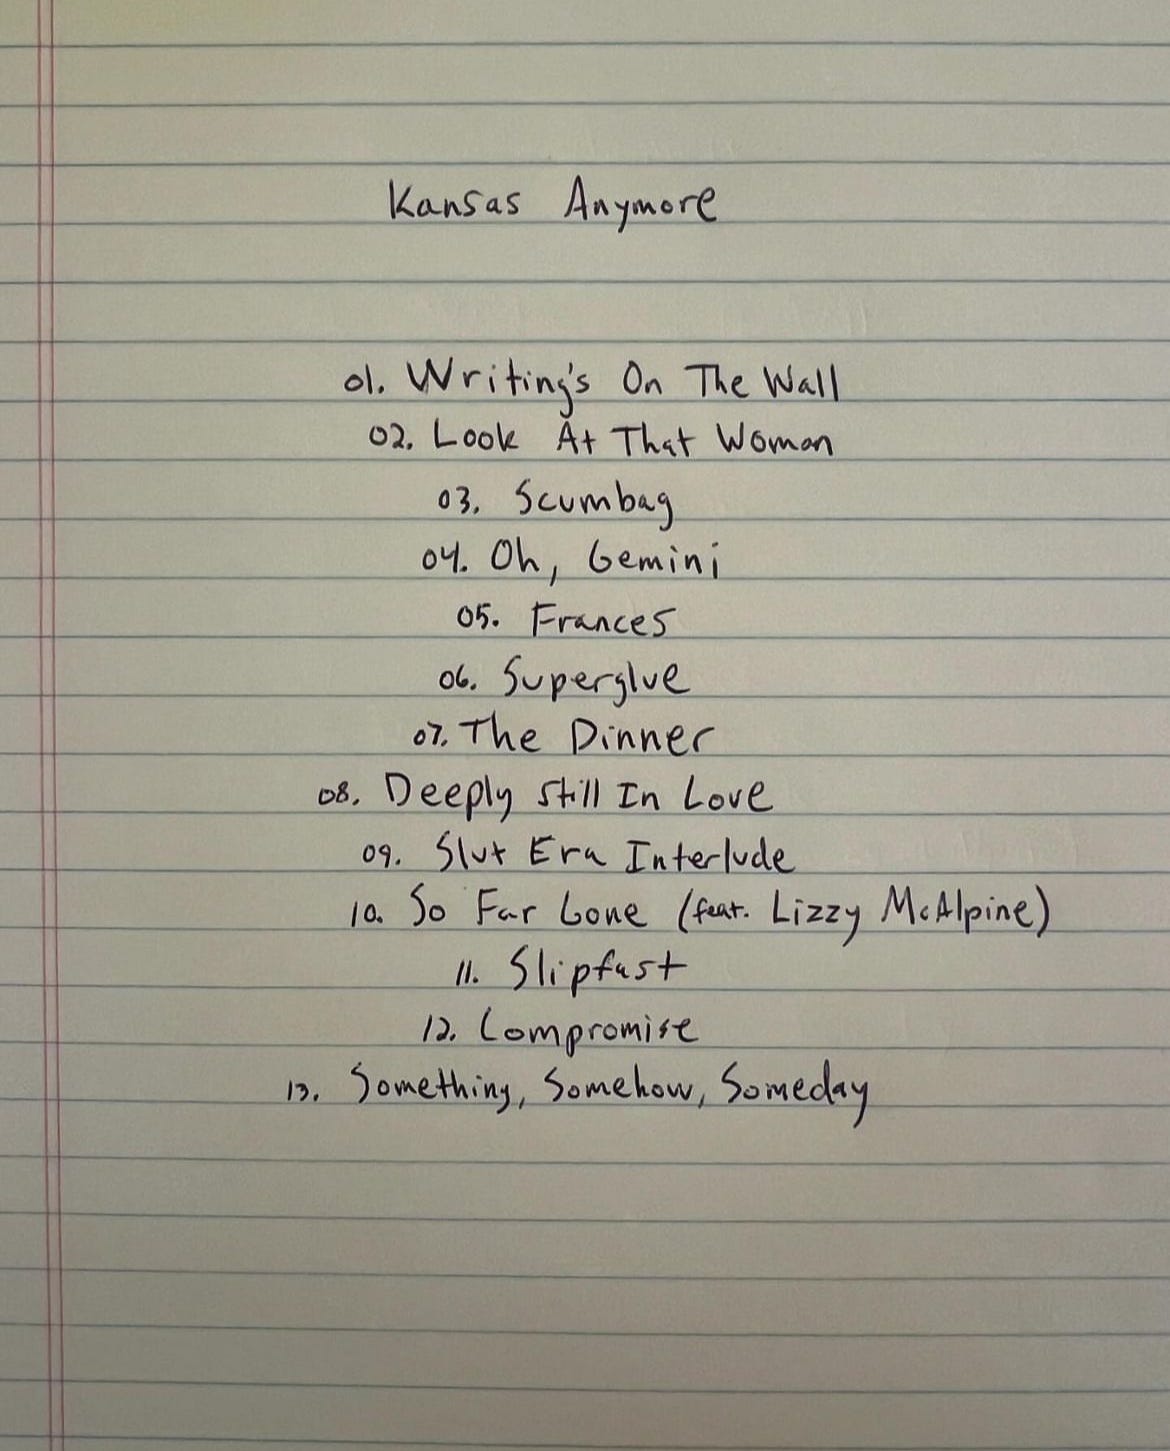 Kansas Anymore
01. Writing's On The Wall
02. Look At That Woman
03. Scumbag
04. Oh, Gemini
05. Frances
06. Superglue
07. The Dinner
08. Deeply Still In Love
09. Slut Era Interlude
10. So Far Gone (feat. Lizzy McAlpine)
11. Slipfast
12. Compromise
13. Something, Somehow, Someday